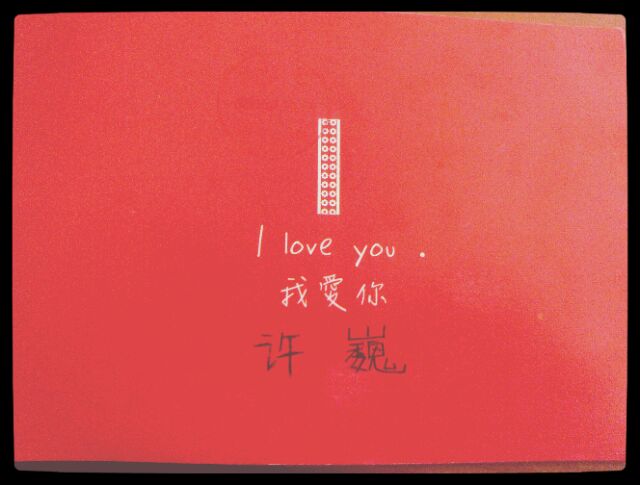 I love you .
我愛你
许 巍